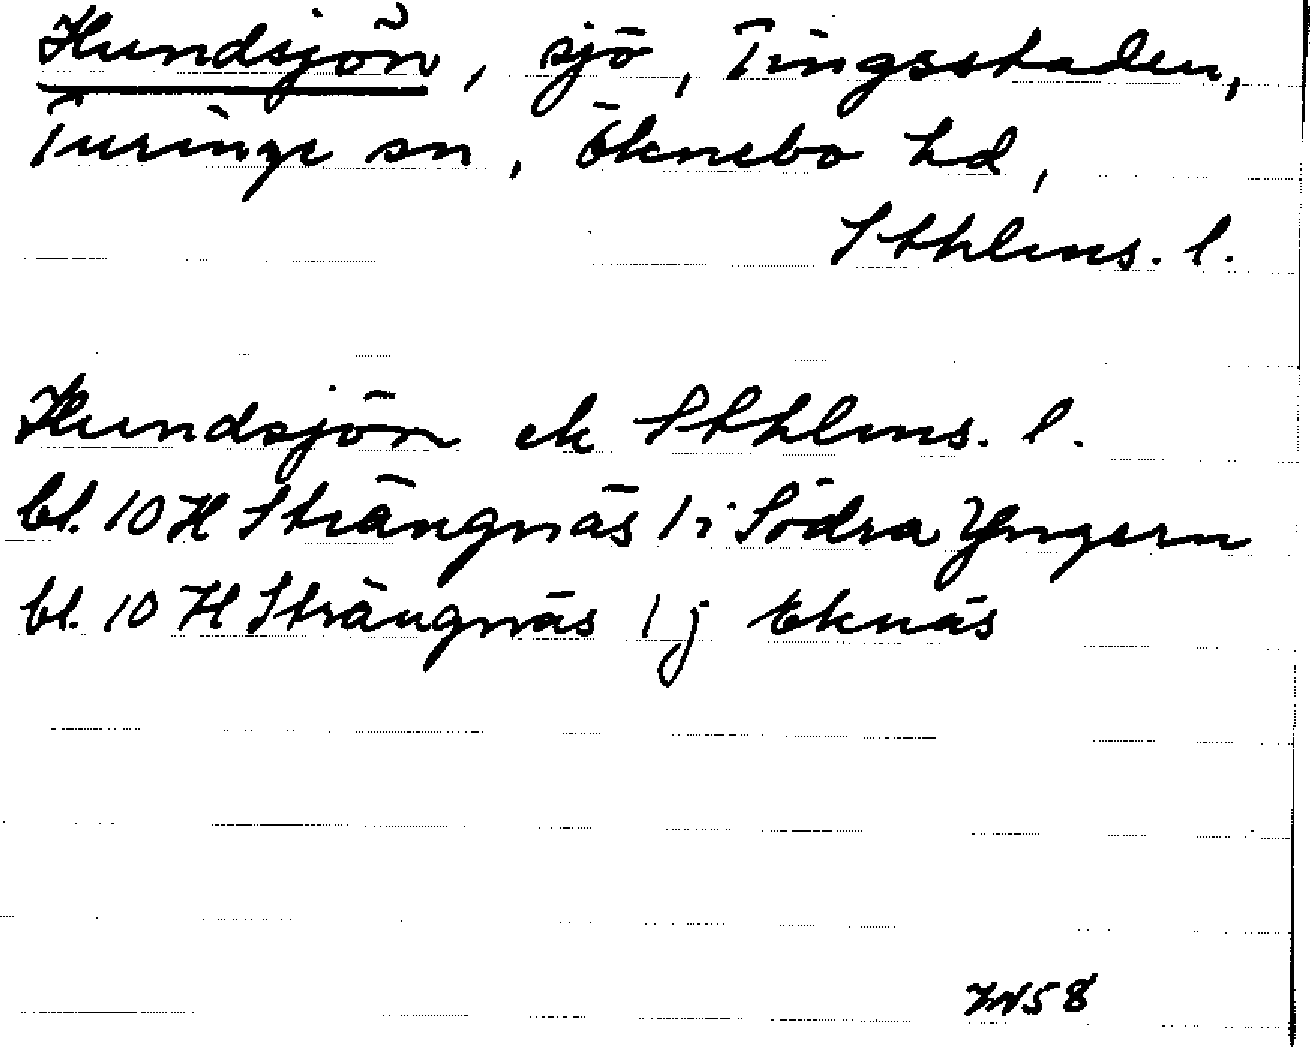 Hundsjön, sjö, Tingsstaden,
Turinge sn, Öknebo hd,
Sthlms. l.
Hundsjön ek Sthlms. l.
bl. 10 H Strängnäs 1i Södra Yngern
bl. 10 H Strängnäs 1j Eknäs